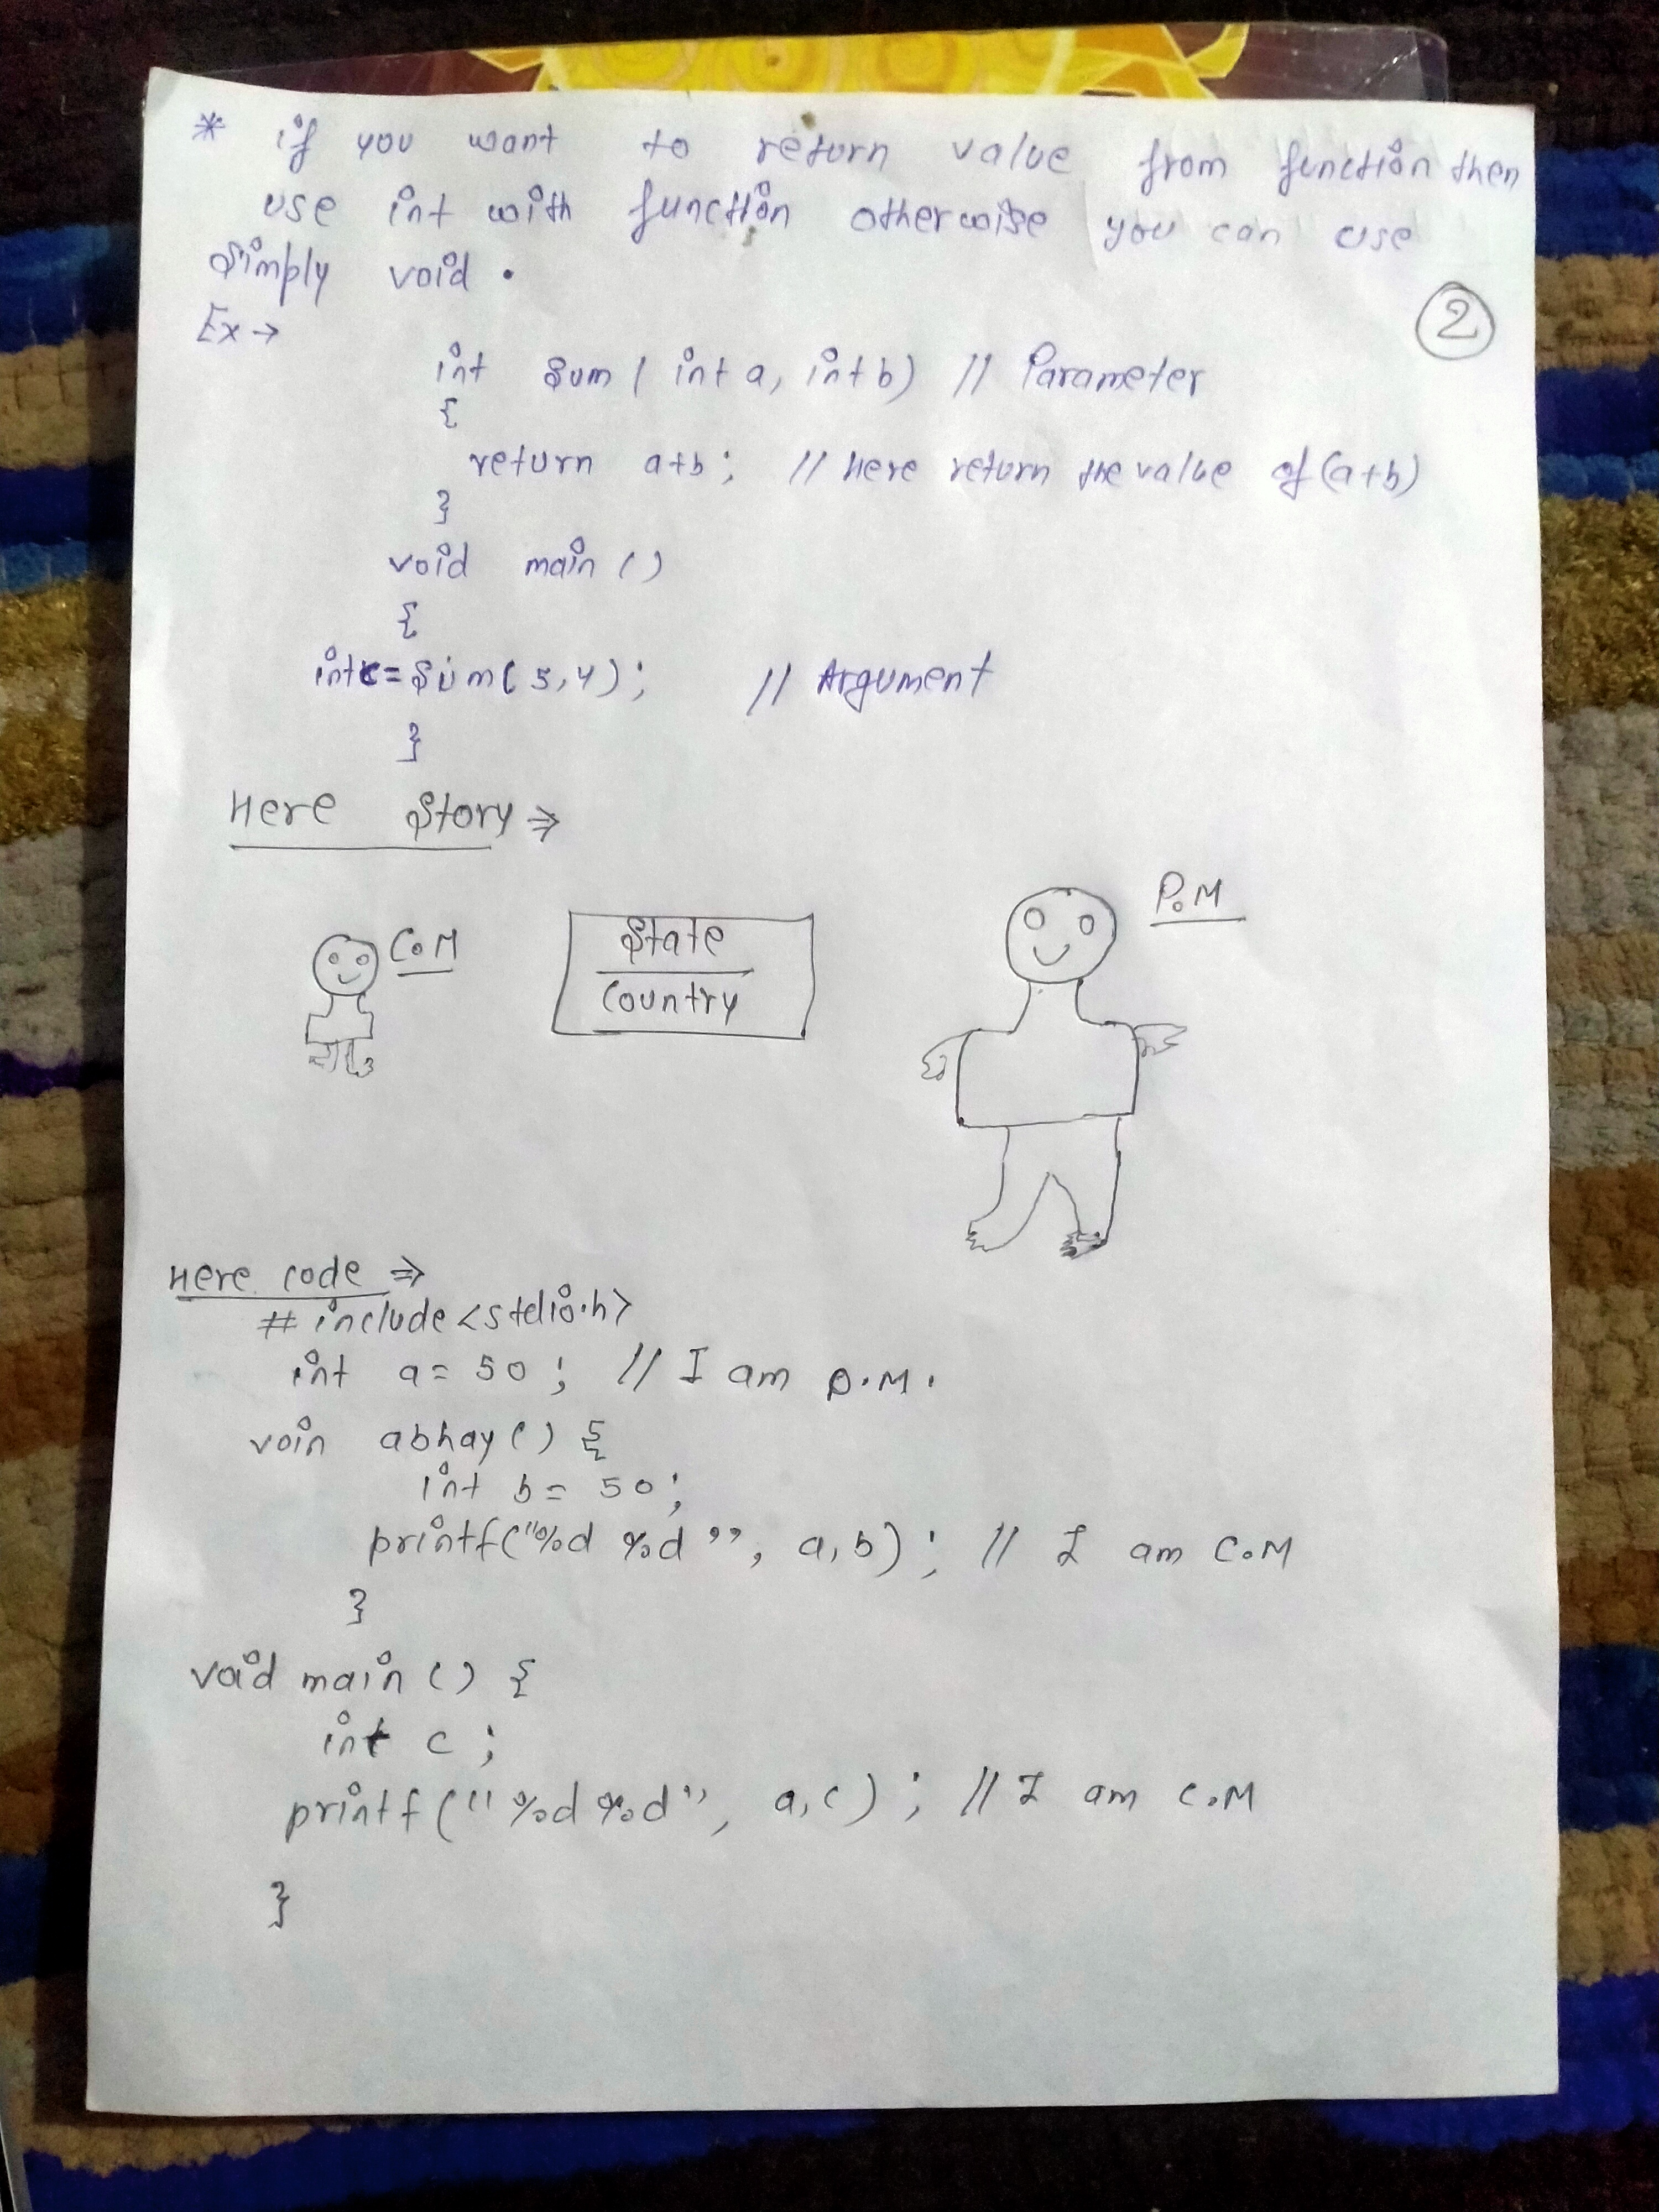 * if you want to return value from function then
use int with function otherwise you can use
simply void.
②
Ex→
int sum ( int a, int b) // Parameter
{
return a+b; // Here return the value of (a+b)
}
void main ()
{
int c = sum( 5,4); // Argument
}
Here Story ⇒
C.M
State
Country
P.M
Here code ⇒
# include <stdio.h>
int a = 50 ; // I am P.M.
voin abhay () {
int b = 50;
printf("%d %d", a, b); // I am C.M
}
void main () {
int c ;
printf ("%d %d", a, c) ; // I am C.M
}